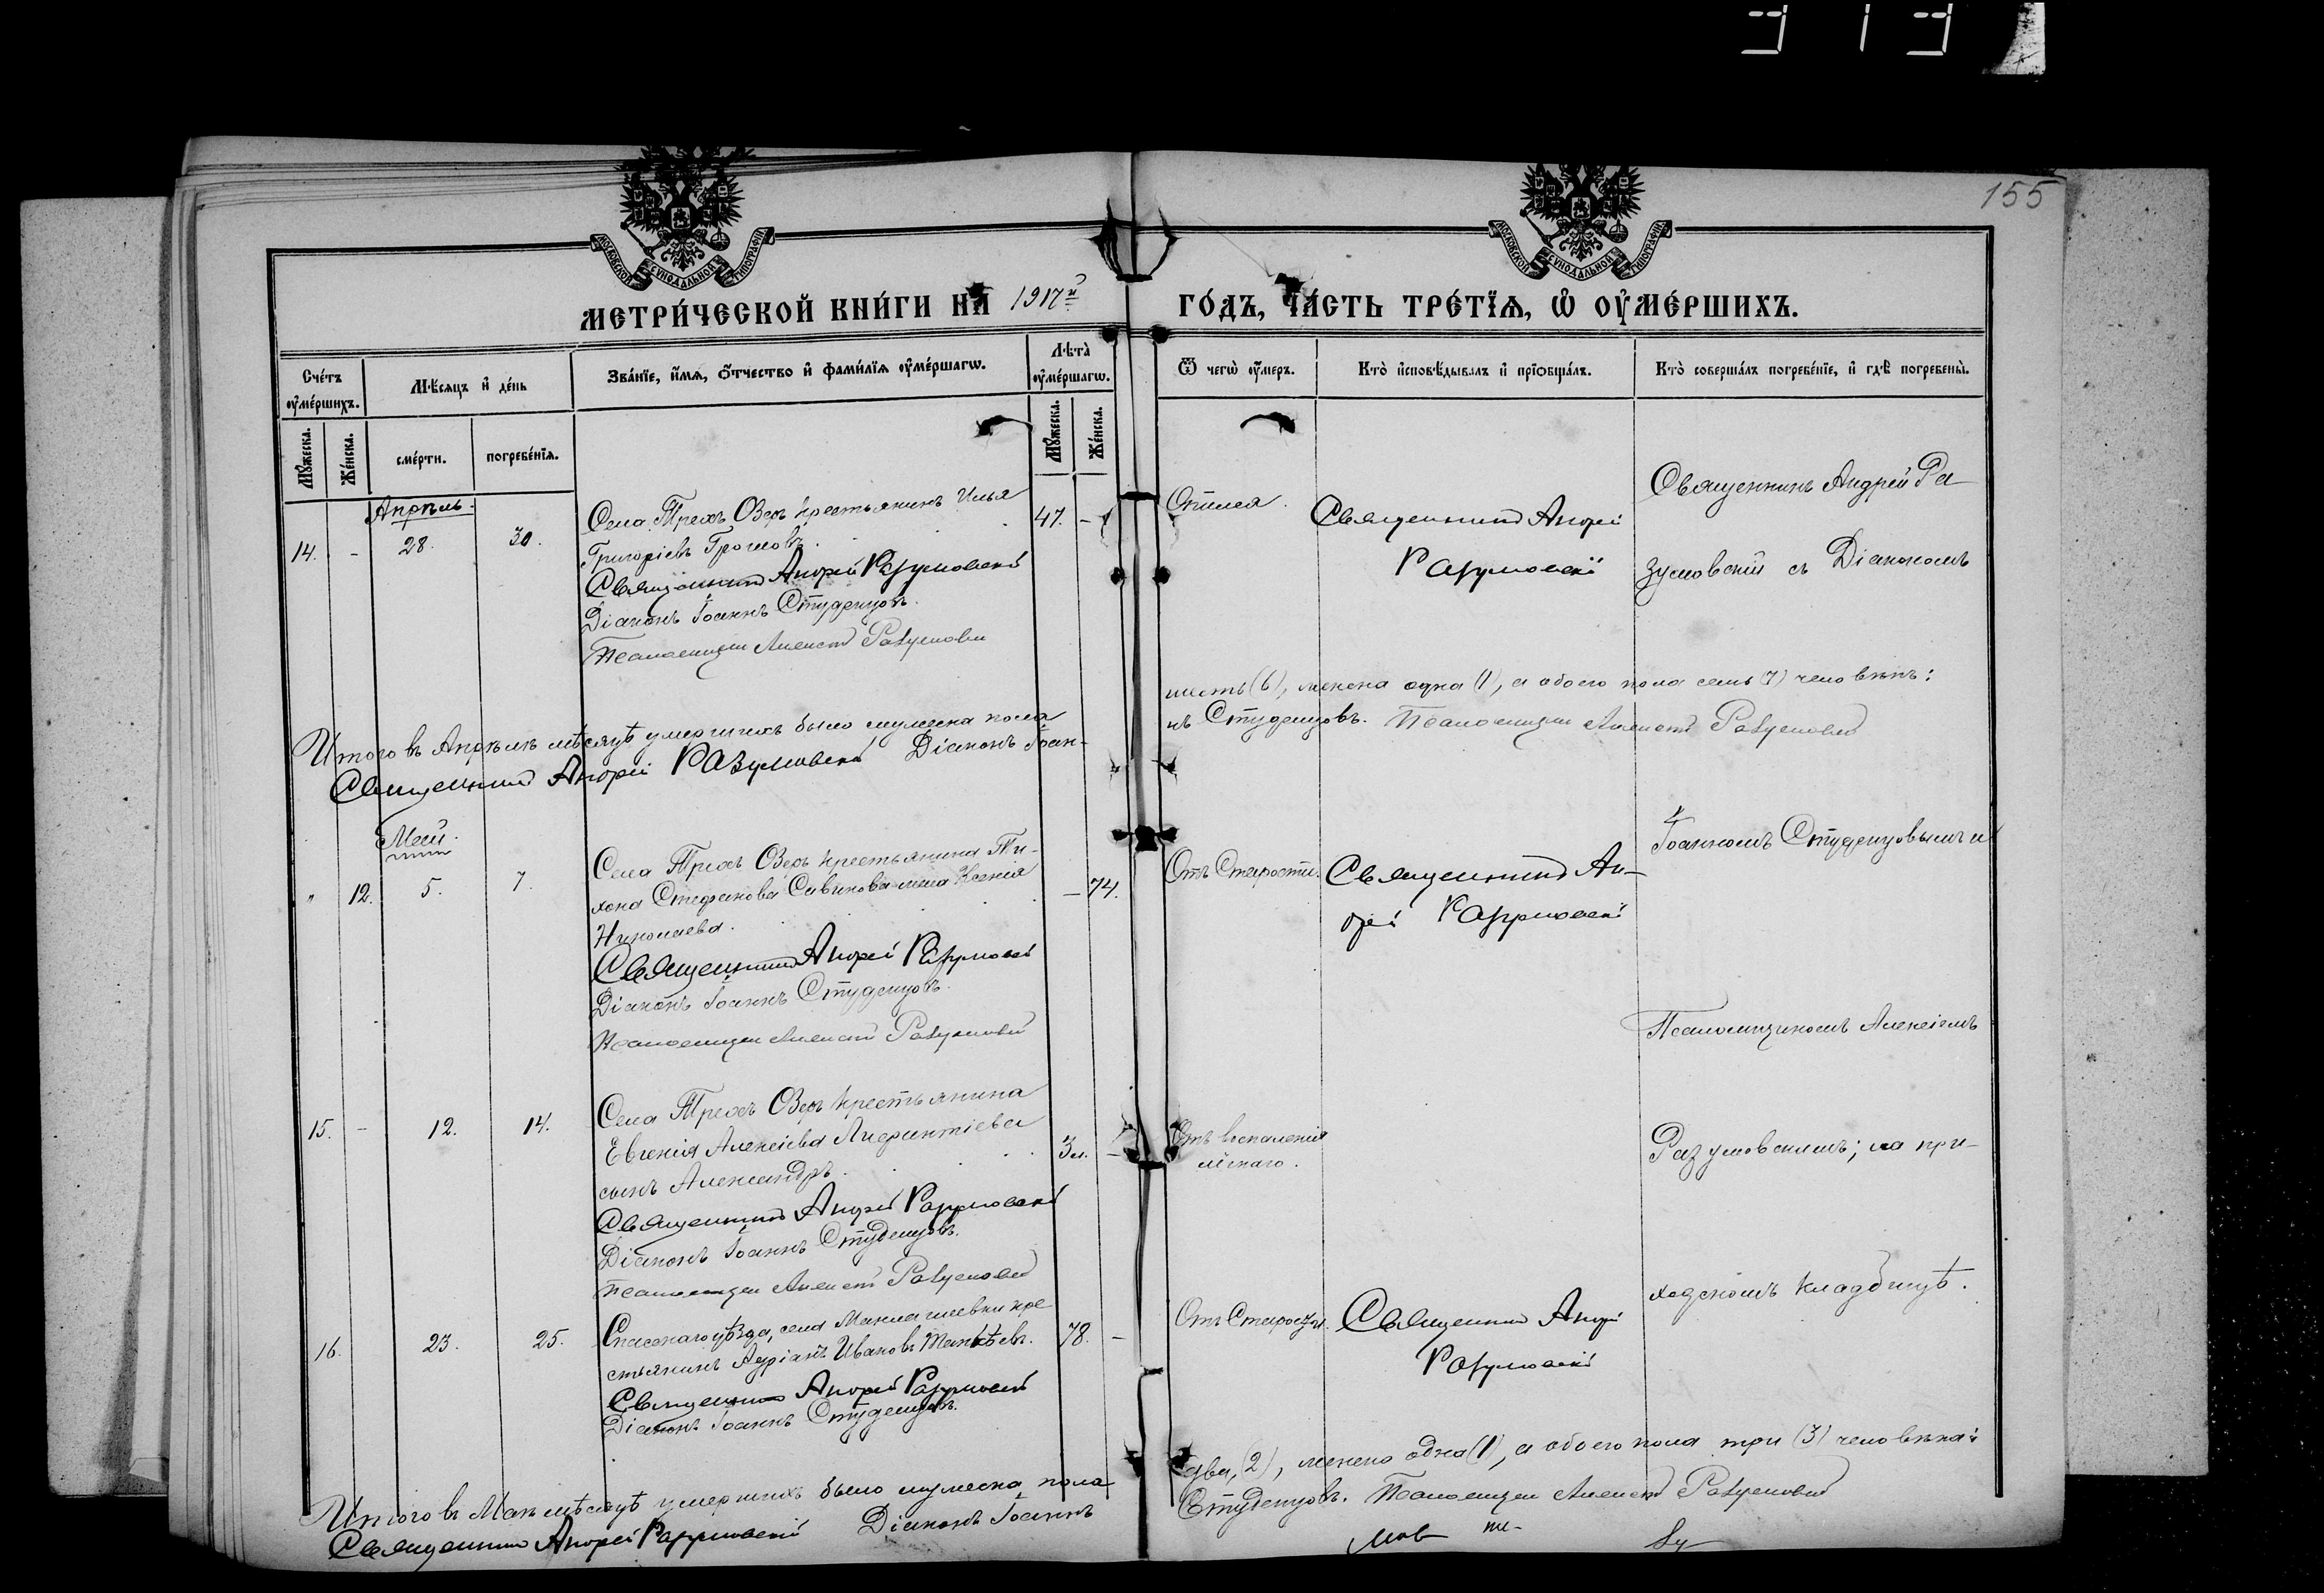 155
МОСКОВСКОЙ СУНОДАЛЬНОЙ ТИПОГРАФІИ
МОСКОВСКОЙ СУНОДАЛЬНОЙ ТИПОГРАФІИ
МЕТРИ́ЧЕСКОЙ КНИ́ГИ НА 1917й ГО́ДЪ, ЧА́СТЬ ТРЕ́ТЇѦ, Ѡ҆ ОУ҆МЕ́РШИХЪ.
Сче́тъ оу҆ме́ршихъ.
Мѣ́сяцъ и҆ де́нь
Зва́нїе, и҆́мѧ, ѻ҆́тчество и҆ фами́лїѧ оу҆ме́ршагѡ.
Лѣ́та̀ оу҆ме́ршагѡ.
Ѿ чегѡ̀ оу҆́меръ.
Кто̀ и҆сповѣ́дывалъ и҆ прїѻбща́лъ.
Кто̀ соверша́лъ погребе́нїе, и҆ гдѣ̀ погребены̀.
Мꙋ́жеска.
Же́нска.
сме́рти.
погребе́нїѧ.
Мꙋ́жеска.
Же́нска.
Апрѣль.
14. - 28. 30.
Села Трехъ Озеръ крестьянинъ Илья
Григоріевъ Громовъ.
47. -
Священникъ Андрей Разумовскій
Діаконъ Іоаннъ Студенцовъ.
Псаломщикъ Алексій Разумовскій
Священникъ Андрей
Разумовскій
Священникъ Андрей Ра-
зумовскій съ Діакономъ
Итого въ Апрѣлѣ мѣсяцѣ умершихъ было мужеска пола
шесть (6), женска одна (1), а обоего пола семь (7) человѣкъ:
Священникъ Андрей Разумовскій Діаконъ Іоан-
нъ Студенцовъ. Псаломщикъ Алексій Разумовскій
Май.
" 12. 5. 7.
Села Трехъ Озеръ крестьянина Ти-
хона Стефанова Савинова жена Ксенія
Николаева.
- 74.
Священникъ Андрей Разумовскій
Діаконъ Іоаннъ Студенцовъ.
Псаломщикъ Алексій Разумовскій
Отъ Старости.
Священникъ Ан-
дрей Разумовскій
Іоанномъ Студенцовымъ и
Псаломщикомъ Алексіемъ
15. - 12. 14.
Села Трехъ Озеръ крестьянина
Евгенія Алексіева
сынъ Александръ.
3 м. -
Священникъ Андрей Разумовскій
Діаконъ Іоаннъ Студенцовъ.
Псаломщикъ Алексій Разумовскій
Отъ воспаленія
Разумовскимъ; на при-
ходскомъ кладбищѣ.
16. 23. 25.
Спасскаго уѣзда, села кре
стьянинъ Адріанъ Ивановъ
78. -
Священникъ Андрей Разумовскій
Діаконъ Іоаннъ Студенцовъ.
Отъ Старости.
Священникъ Андрей
Разумовскій
Итого въ Маѣ мѣсяцѣ умершихъ было мужеска пола
два, (2), женска одна (1), а обоего пола три (3) человѣка:
Священникъ Андрей Разумовскій Діаконъ Іоаннъ
Студенцовъ. Псаломщикъ Алексій Разумовскій